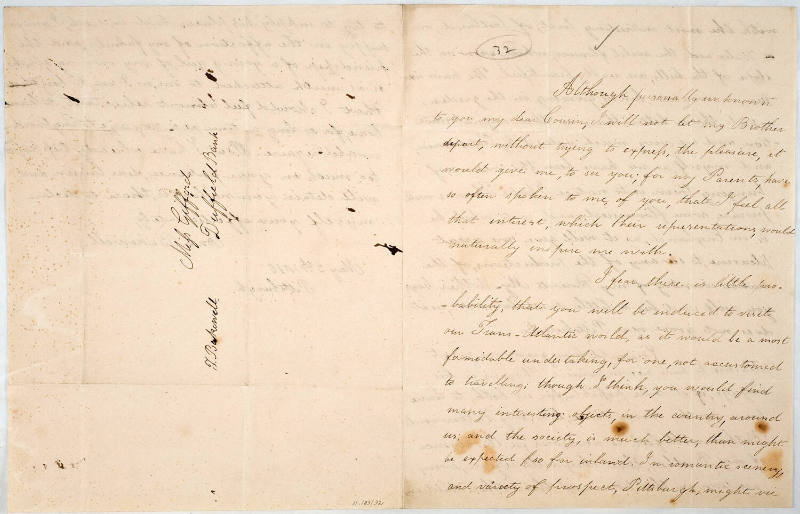 Miss Gifford
Duffield Bank
T. Bakewell
32
Although, personally unknown
to you my dear Cousin, I will not let my Brother
depart, without trying to express, the pleasure, it
would give me, to see you; for my Parents, have
so often spoken to me, of you, that I feel all
that interest, which their representations, would
naturally inspire me with.
I fear, there is little pro-
-bability, that you will be induced to visit
our Trans-Atlantic world, as it would be a most
formidable undertaking, for one, not accustomed
to travelling; though I think, you would find
many interesting objects, in the country, around
us; and the society, is much better, than might
be expected so far inland. In romantic scenery,
and variety of prospect, Pittsburgh, might vie